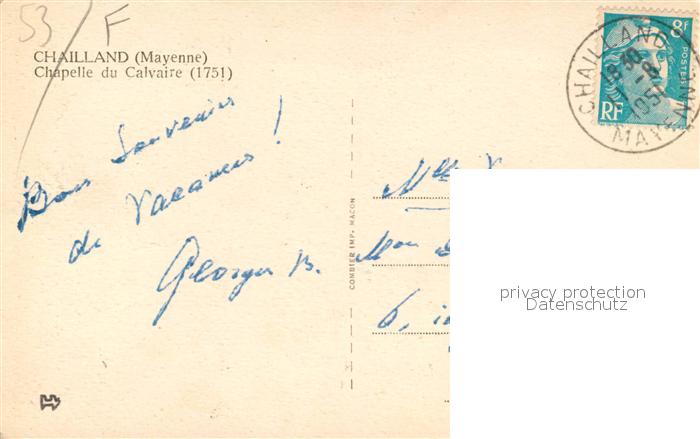 53 F
CHAILLAND (Mayenne)
Chapelle du Calvaire (1751)
Bons Souvenirs
de Vacances !
Georges B.
COMBIER IMP. MACON
8F
POSTES
RF
CHAILLAND
18 30
8
1950
MAYENNE
Mlle
6,
privacy protection
Datenschutz